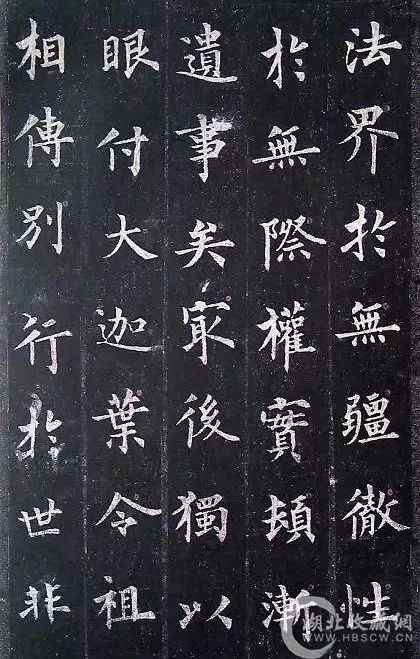 法界於無疆徹性
於無際權實頓漸
遺事矣冣後獨以
眼付大迦葉令祖
相傳別行於世非
湖北收藏網
WWW.HBSCW.CN